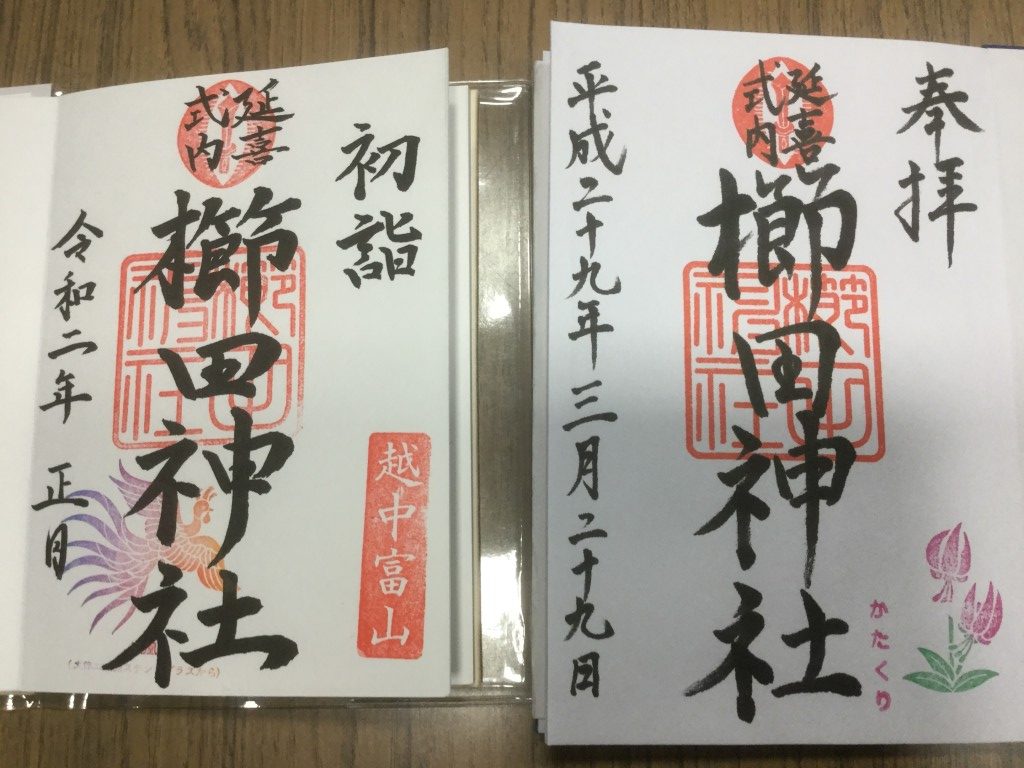 奉拝
延喜
式内
櫛田神社
平成二十九年三月二十九日
かたくり
初詣
越中富山
延喜
式内
櫛田神社
令和二年 正月